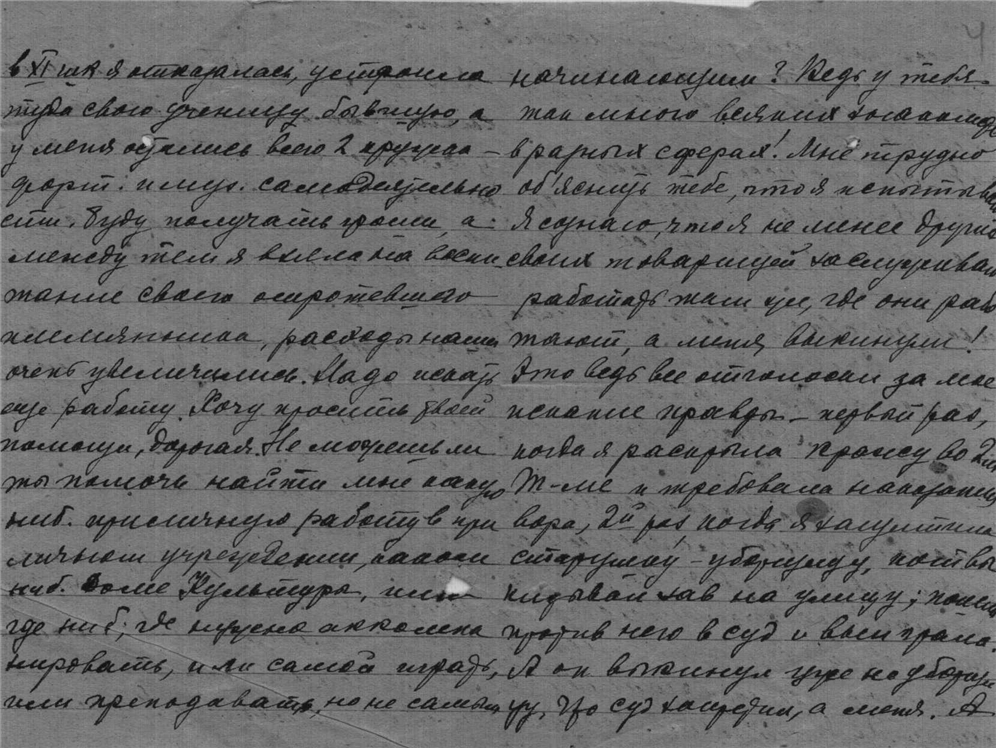 в XI шк я отказалась, устроила
туда свою ученицу бывшую, а
у меня остались всего 2 кружка –
форт. и муз. самодеятельно
сти. Буду получать гроши, а
между тем я взяла на воспи
тание своего осиротевшего
племянника, расходы наши
очень увеличились. Надо искать
еще работу. Хочу просить твоей
помощи, дорогая. Не можешь ли
ты помочь найти мне какую
ниб. приличную работу в при
личном учреждении, каком
ниб. Доме Культуры, или
где ниб., где нужно аккомпа
нировать, или самой играть,
или преподавать, но не самым
начинающим? Ведь у тебя
так много всяких знакомых
в разных сферах! Мне трудно
об'яснить тебе, что я испытываю
Я сознаю, что я не менее других
своих товарищей заслуживаю
работать там же, где они рабо
тают, а меня выкинули!
Это ведь все отголоски за мое
искание правды – первый раз,
когда я раскрыла кражу во 2й
М-ле и требовала наказания
вора, 2й раз, когда я заступила
старушку – уборщицу, кот. вы
кидывал зав на улицу; пошла
против него в суд и выиграла.
А он выкинул уже не уборщи
цу, что суд запретил, а меня. А